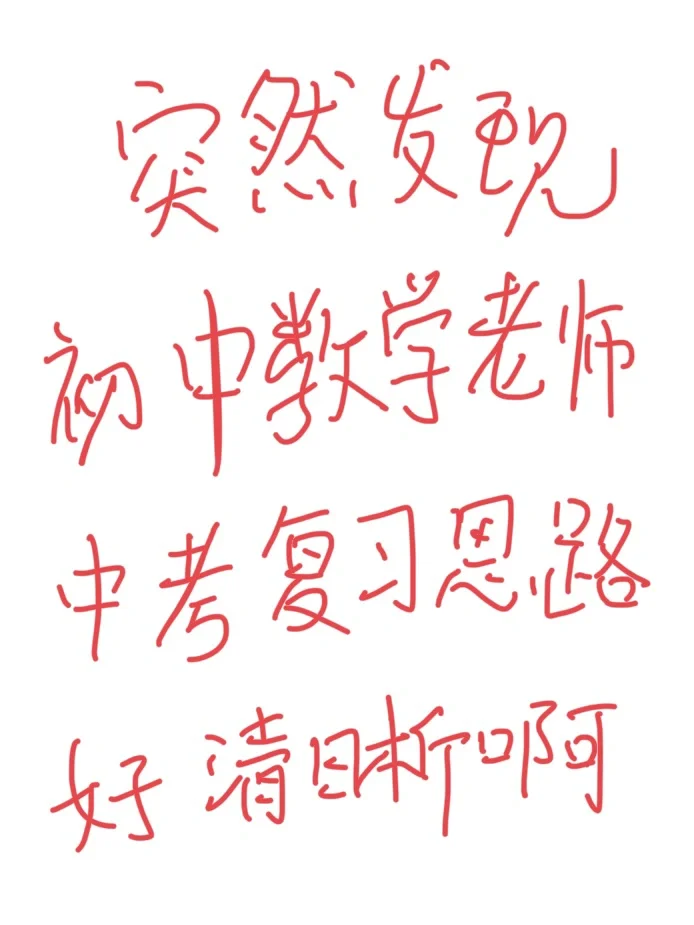 突然发现
初中数学老师
中考复习思路
好清晰啊